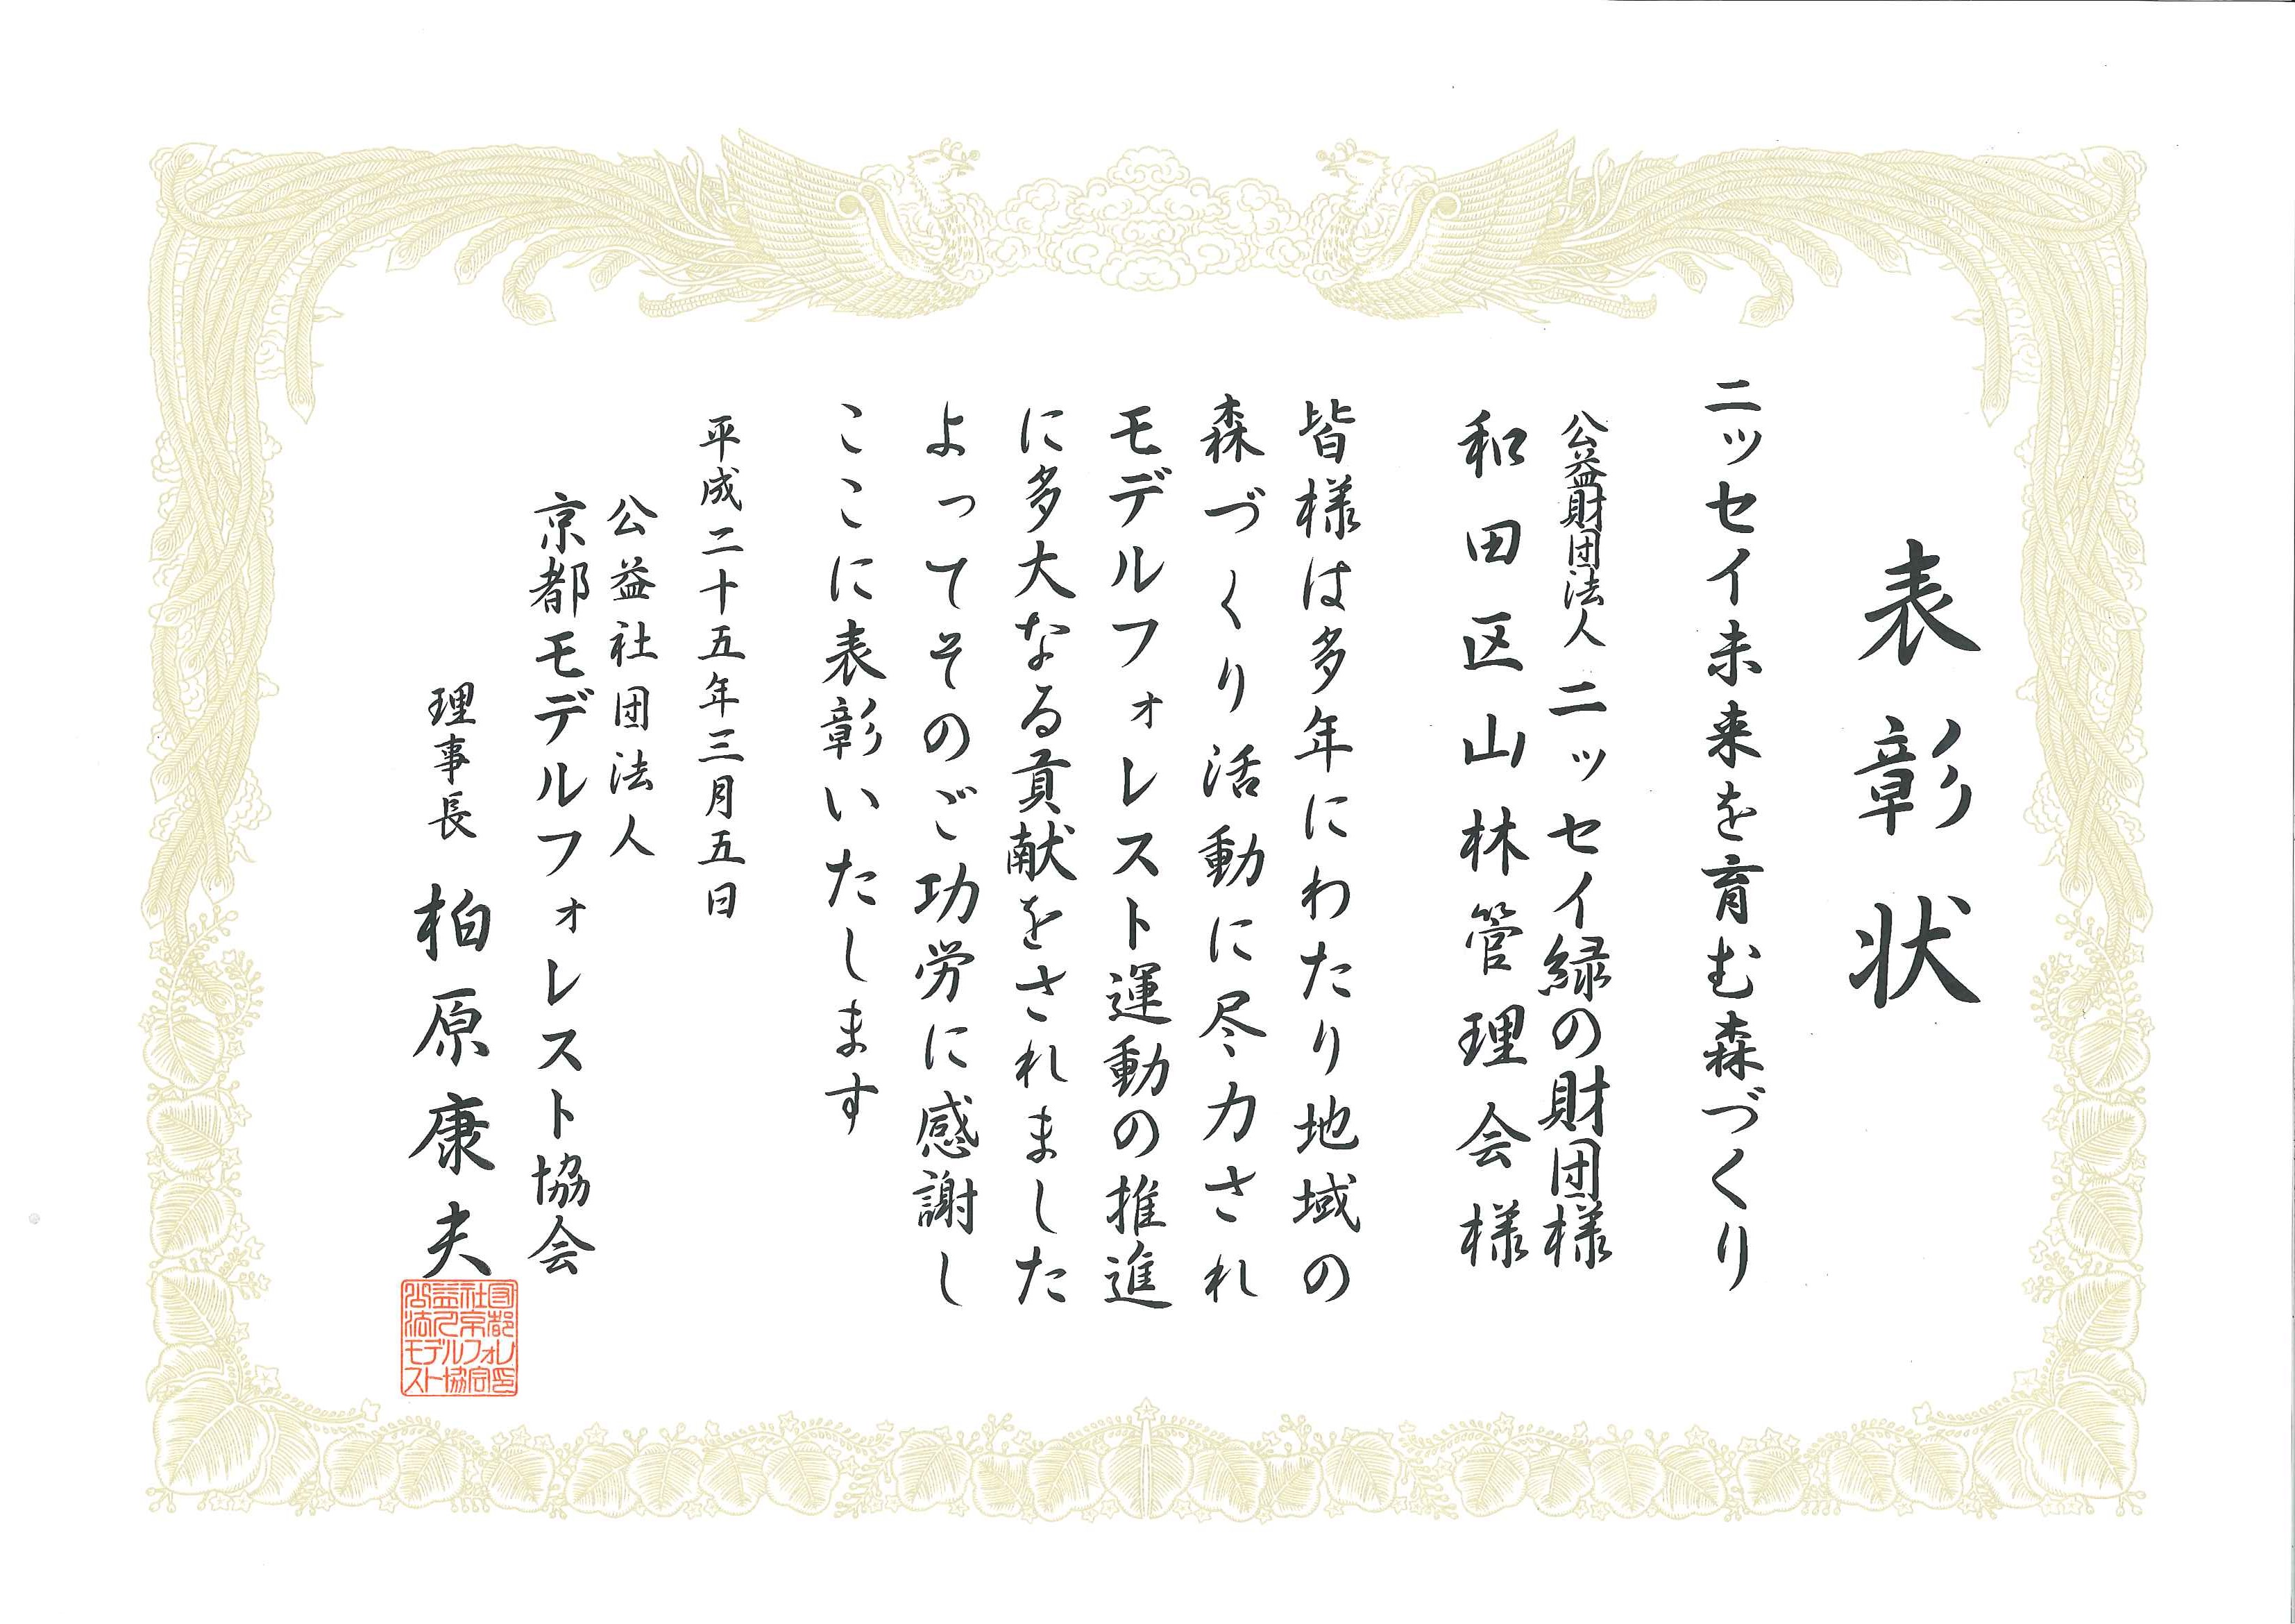 表彰状
ニッセイ未来を育む森づくり
公益財団法人 ニッセイ緑の財団様
和田区山林管理会様
皆様は多年にわたり地域の
森づくり活動に尽力され
モデルフォレスト運動の推進
に多大なる貢献をされました
よってそのご功労に感謝し
ここに表彰いたします
平成二十五年三月五日
公益社団法人
京都モデルフォレスト協会
理事長 柏原康夫
公益社団
法人京都
モデルフォレ
スト協会印